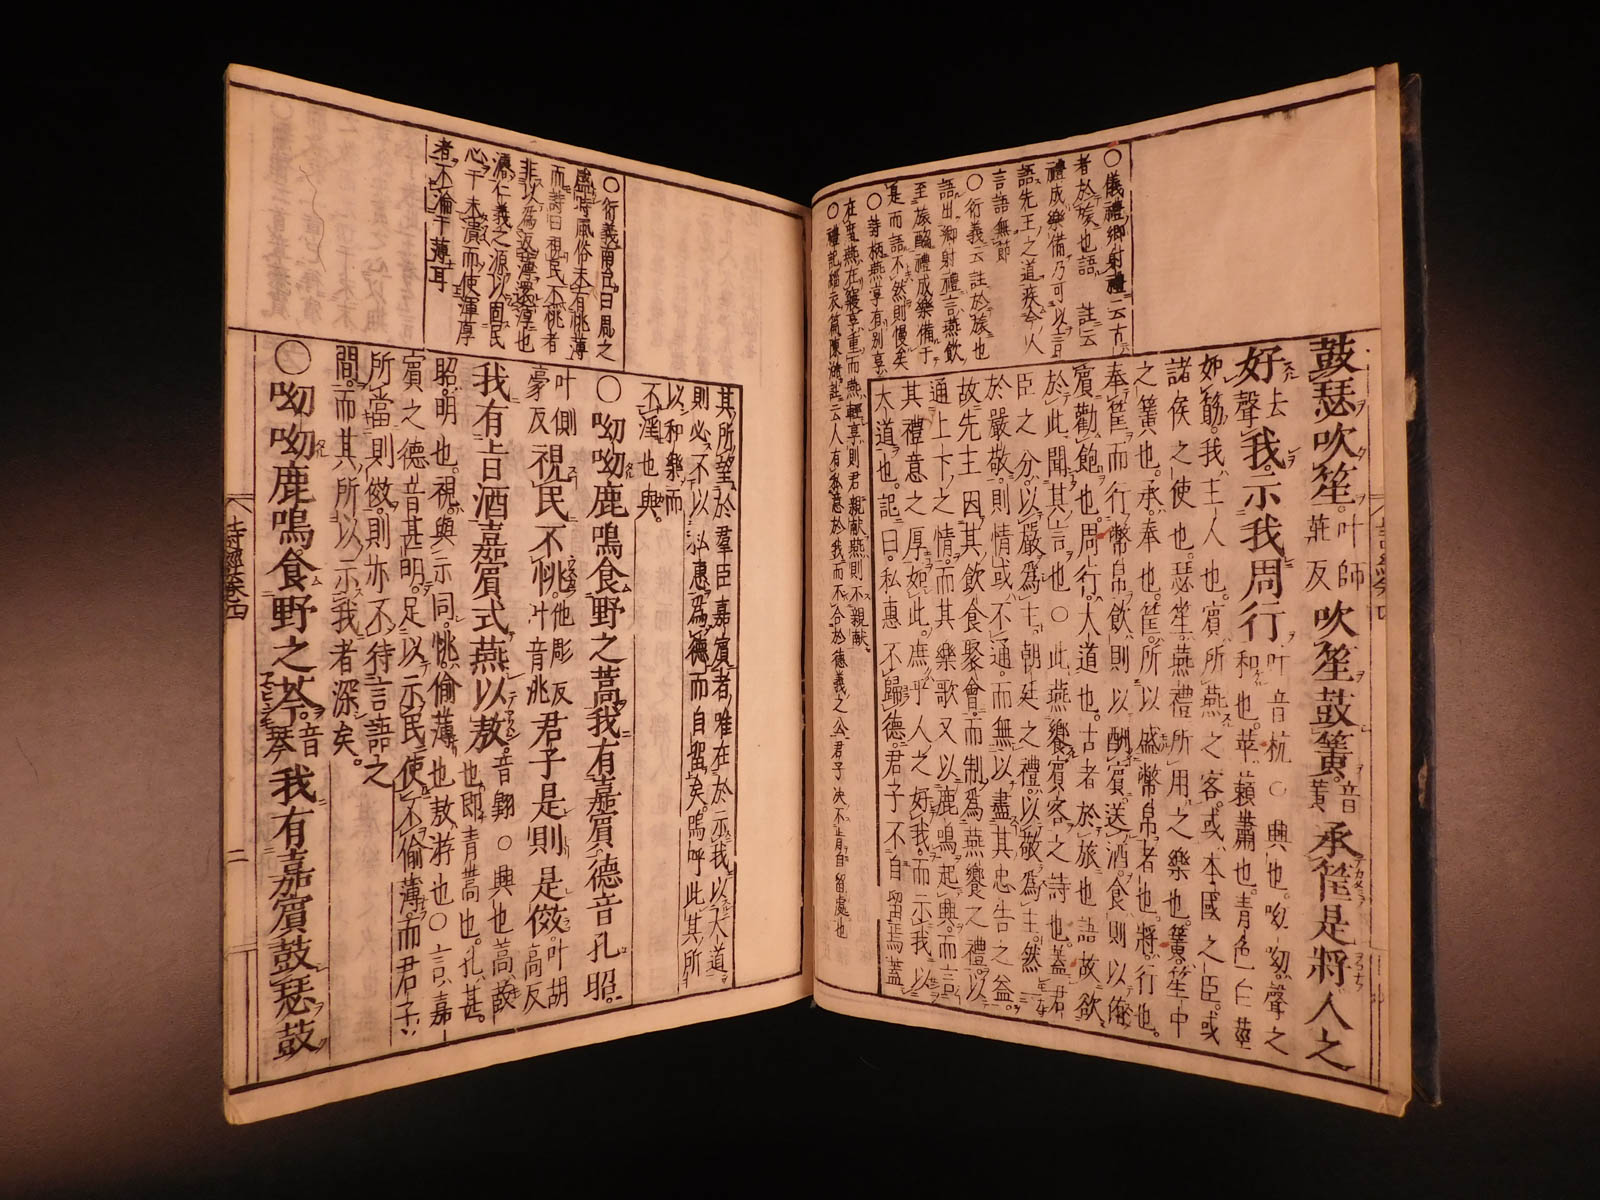 鼓瑟吹笙。叶師莊反吹笙鼓簧。音黃承筐是將人之
好去聲我。示我周行叶音杭○興也。呦呦。聲之
和也。苹。藾蕭也。青色。白莖
如筋。我。主人也。賓。所燕之客。或本國之臣。或
諸侯之使也。瑟笙。燕禮所用之樂也。簧。笙中
之簧也。承。奉也。筐。所以盛幣帛者也。將。行也。
奉筐而行幣帛。飲則以酬賓送酒。食則以侑
賓勸飽也。周行。大道也。古者於旅也語。故欲
於此聞其言也○此燕饗賓客之詩也。蓋君
臣之分。以嚴爲主。朝廷之禮。以敬爲主。然一
於嚴敬。則情或不通。而無以盡其忠告之益。
故先王因其飲食聚會。而制爲燕饗之禮。以
通上下之情。而其樂歌又以鹿鳴起興。而言
其禮意之厚如此。庶乎人之好我。而示我以
大道也。記曰。私惠不歸德。君子不自留焉。蓋
○儀禮鄉射禮云古
者於旅也語註云
禮成樂備乃可以言
語先王之道疾今人
言語無節
○衍義云註於旅也
語出鄉射禮言燕飲
至旅酬禮成樂備于
是而語不然則慢矣
○詩柄燕享有別享
在廟燕在寢享重而燕輕享則君親献燕則不親献
○禮記緇衣篇陳澔註云人有私惠於我而不合於德義之公君子決不肯自留處也
其所望於羣臣嘉賓者。唯在於示我以大道。
則必不以私惠爲德而自留矣。嗚呼此其所
以和樂而
不淫也與
○呦呦鹿鳴食野之蒿我有嘉賓德音孔昭。
叶側豪反視民不恌。他彫反叶音兆君子是則是傚。叶胡高反
我有旨酒嘉賓式燕以敖。音翺○興也蒿。菣
也。即青蒿也。孔。甚。
昭。明也。視與示同。恌。偷薄也敖。游也○言嘉
賓之德音甚明。足以示民使不偷薄。而君子
所當則傚。則亦不待言語之
間。而其所以示我者深矣。
○呦呦鹿鳴。食野之芩。音琴我有嘉賓鼓瑟鼓
○衍義南台曰周之
盛時風俗未有恌薄
而詩曰視民不恌者
非以爲反薄還淳也
濬仁義之源以固民
心于未漬而使渾厚
者不淪于薄耳
詩經卷四
二